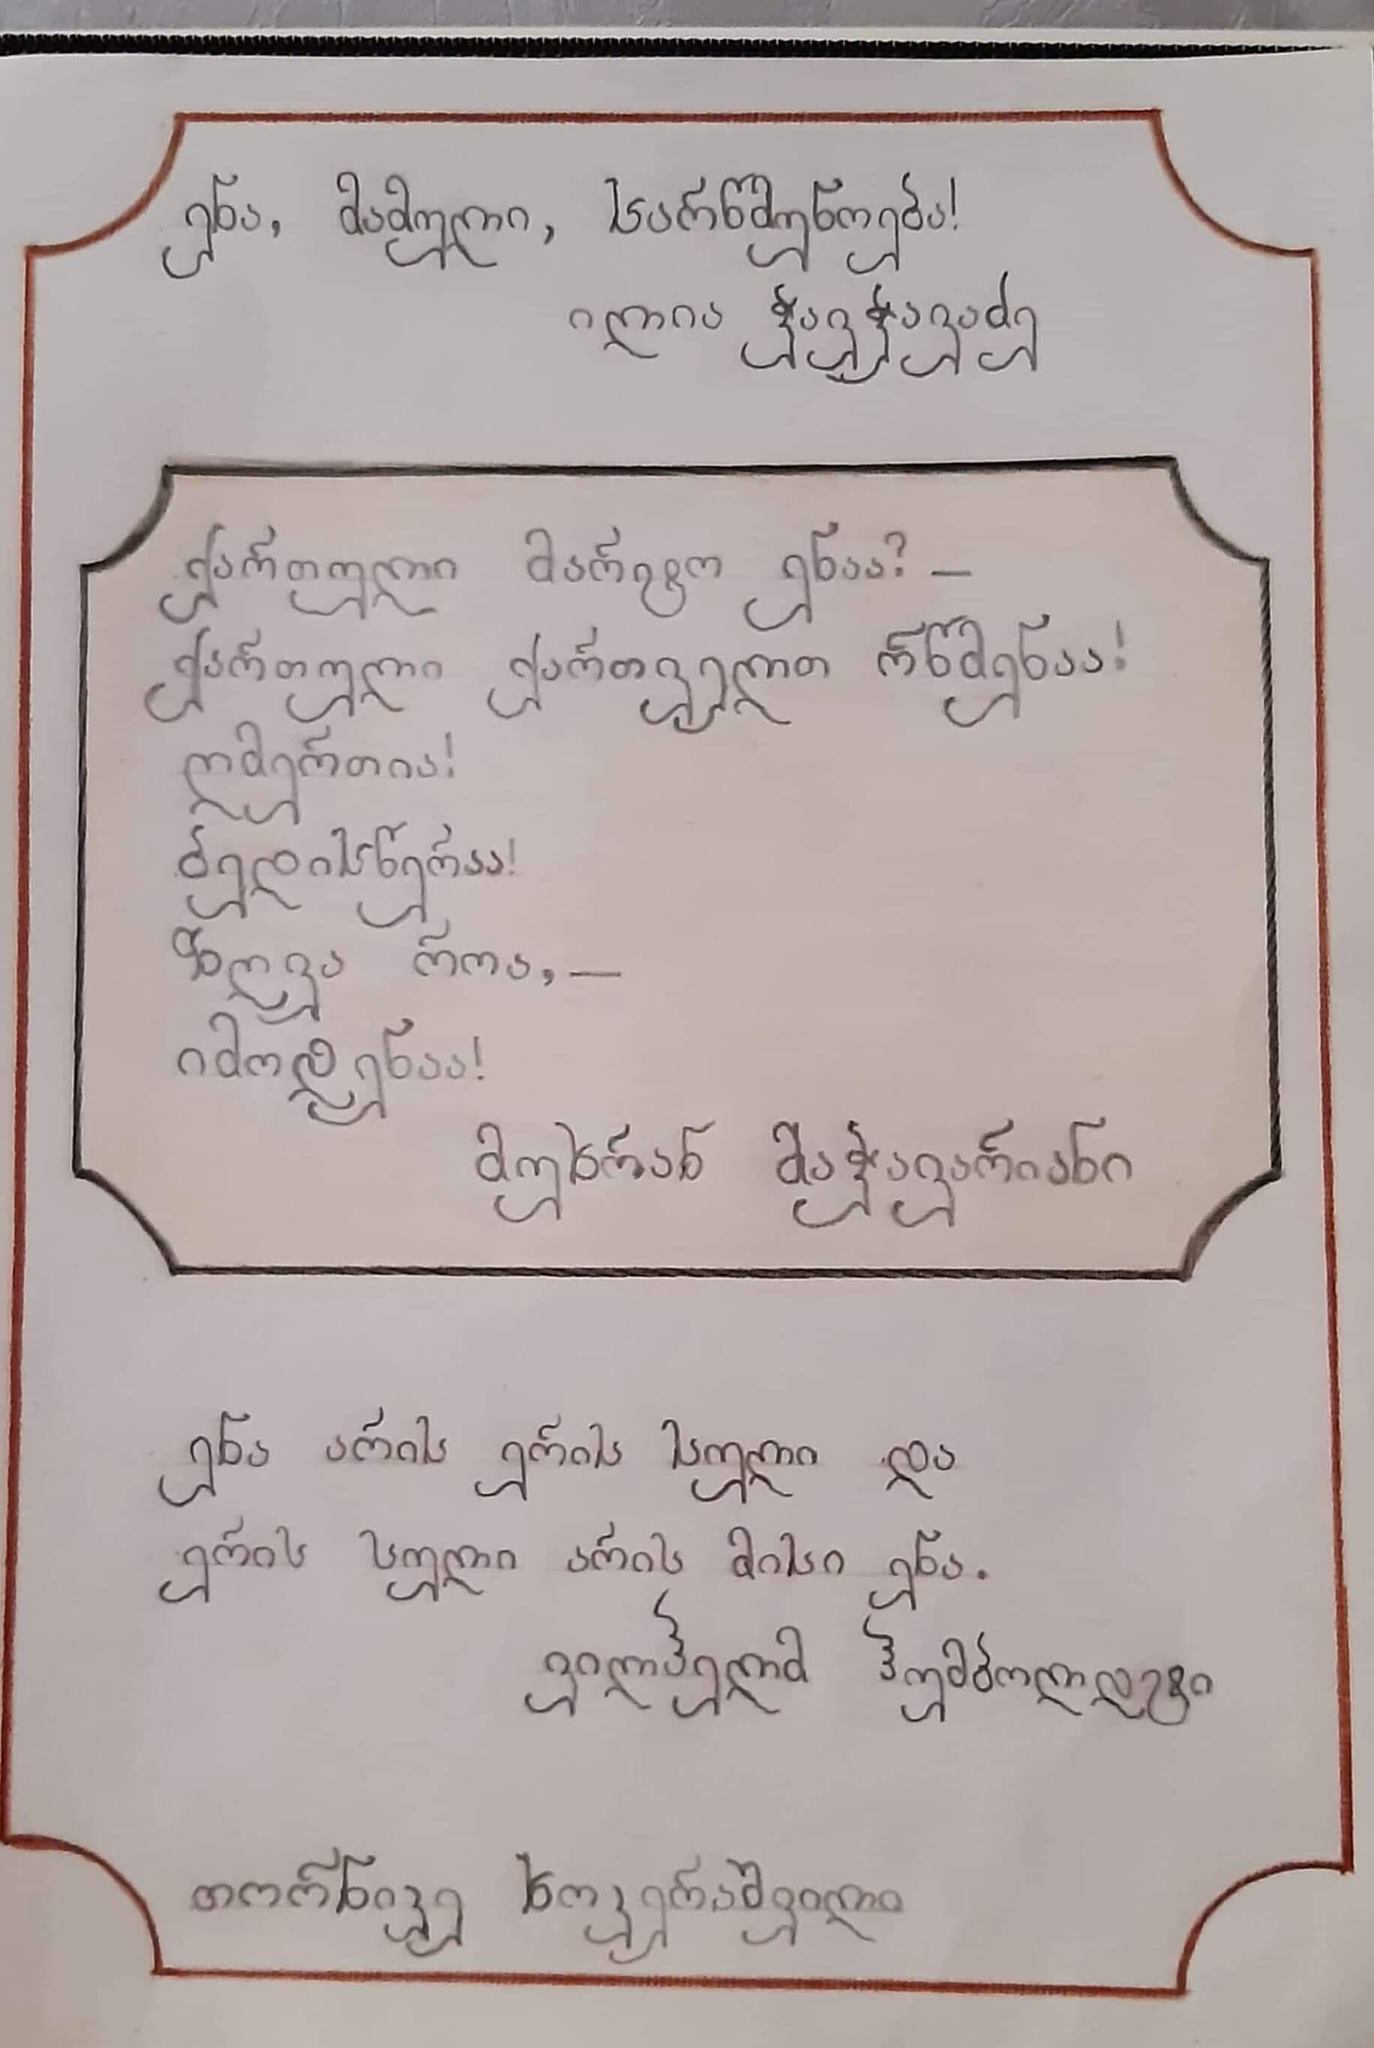 ენა, მამული, სარწმუნოება!
ილია ჭავჭავაძე
ქართული მარტო ენაა? –
ქართული ქართველთ რწმენაა!
ღმერთია!
ბედისწერაა!
ზღვა რაა, –
იმოდენაა!
მუხრან მაჭავარიანი
ენა არის ერის სული და
ერის სული არის მისი ენა.
ვილჰელმ ჰუმბოლდტი
თორნიკე ხოკერაშვილი